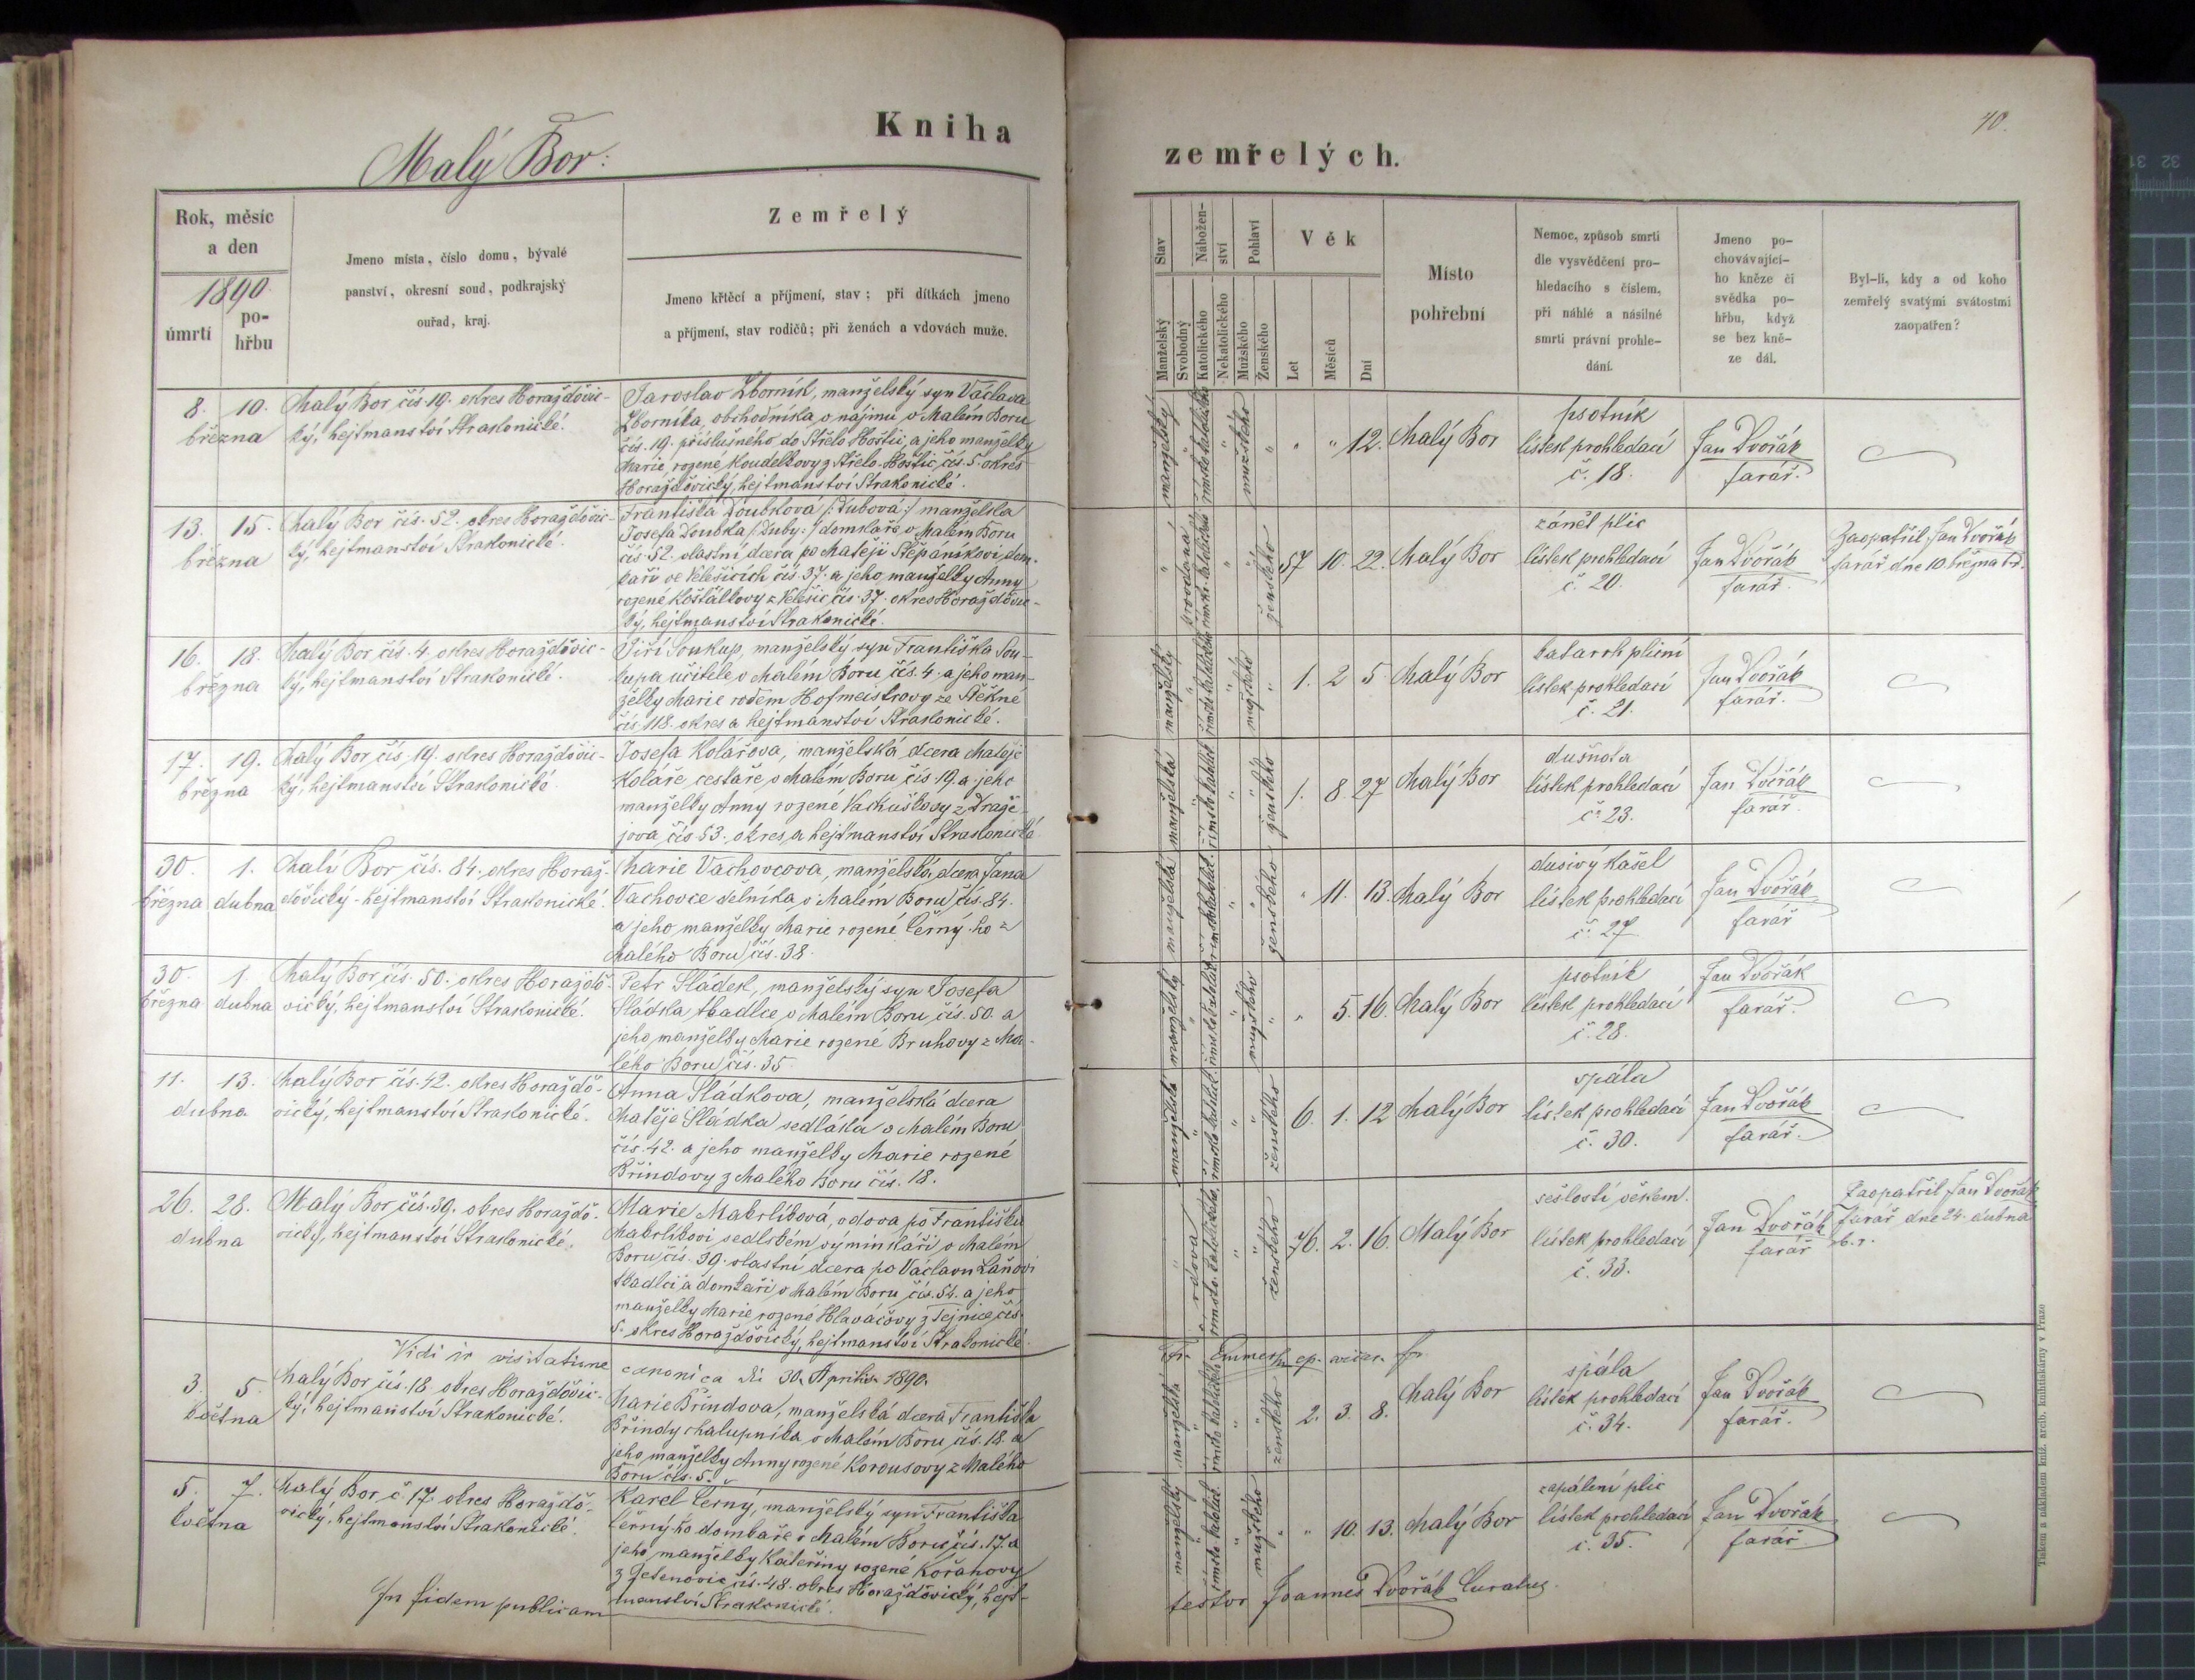 Kniha
Malý Bor:
Rok, měsíc
a den
1890.
úmrtí
po-
hřbu
Jmeno místa, číslo domu, bývalé
panství, okresní soud, podkrajský
ouřad, kraj.
Zemřelý
Jmeno křtěcí a příjmení, stav; při dítkách jmeno
a příjmení, stav rodičů; při ženách a vdovách muže.
8. 10.
března
Malý Bor čís. 19. okres Horažďovic-
ký, hejtmanství Strakonické.
Jaroslav Zborník, manželský syn Václava
Zborníka, obchodníka v nájmu v Malém Boru
čís. 19. příslušného do Střelo Hoštic, a jeho manželky
Marie, rozené Koudelkovy z Střelo-Hoštic, čís. 5. okres
Horažďovický, hejtmanství Strakonické.
13. 15.
března
Malý Bor čís. 52. okres Horažďovic-
ký, hejtmanství Strakonické.
Františka Doubková /:Dubová:/ manželka
Josefa Doubka /:Duby:/ domkáře v Malém Boru
čís 52. vlastní dcera po Matěji Štěpánkovi, dom-
káři ve Velešicích čís. 37. a jeho manželky Anny
rozené Košťálkovy z Velešic čís. 37. okres Horažďovic-
ký, hejtmanství Strakonické.
16. 18.
března
Malý Bor čís. 4. okres Horažďovic-
ký, hejtmanství Strakonické.
Jiří Soukup, manželský syn Františka Sou-
kupa učitele v Malém Boru čís. 4. a jeho man-
želky Marie rodem Hofmeistrovy ze Štěkně
čís. 118. okres a hejtmanství Strakonické.
17. 19.
března
Malý Bor čís. 19. okres Horažďovic-
ký, hejtmanství Strakonické
Josefa Kolářova, manželská dcera Matěje
Koláře cestáře v Malém Boru čís 19. a jeho
manželky Anny rozené z Draže-
jova čís 53. okres a hejtmanství Strakonické
30. 1.
března dubna
Malý Bor čís. 84. okres Horaž-
ďovický - hejtmanství Strakonické.
Marie Vachovcova, manželská dcera Jana
Vachovce dělníka v Malém Boru čís. 84.
a jeho manželky Marie rozené Černý.ho z
Malého Boru čís. 38.
30. 1.
března dubna
Malý Bor čís. 50. okres Horažďo-
vický, hejtmanství Strakonické.
Petr Sládek, manželský syn Josefa
Sládka tkadlce v Malém Boru čís. 50. a
jeho manželky Marie rozené Bruhovy z Ma-
lého Boru čís. 35
11. 13.
dubna
Malý Bor čís. 42. okres Horažďo-
vický, hejtmanství Strakonické.
Anna Sládkova, manželská dcera
Matěje Sládka sedláka v Malém Boru
čís. 42. a jeho manželky Marie rozené
Břindovy z Malého Boru čís. 18.
26. 28.
dubna
Malý Bor čís. 39. okres Horažďo-
vický, hejtmanství Strakonické.
Marie Makrlíková, vdova po Františku
Makrlíkovi sedlském výminkáři v Malém
Boru čís. 39. vlastní dcera po Václavu
tkadlci a domkáři v Malém Boru čís. 54. a jeho
manželky Marie rozené Hlaváčovy z Tejnice čís.
5. okres Horažďovický, hejtmanství Strakonické.
Vidi in visitatione canonica die 30. Aprilis 1890.
3. 5.
května
Malý Bor čís. 18 okres Horažďovic-
ký, hejtmanství Strakonické.
Marie Břindova, manželská dcera Františka
Břindy chalupníka v Malém Boru čís. 18. a
jeho manželky Anny rozené Korousovy z Malého
Boru čís. 5.
5. 7.
května
Malý Bor č. 17. okres Horažďo-
vický, hejtmanství Strakonické.
Karel Černý, manželský syn Františka
Černý.ho domkáře v Malém Boru čís. 17. a
jeho manželky Kateřiny rozené Kořánovy
z Jetenovic čís. 48. okres Horažďovický, hejt-
manství Strakonické.
In fidem publicam
40.
zemřelých.
Stav
Nábožen-
ství
Pohlaví
Věk
Manželský
Svobodný
Katolického
Nekatolického
Mužského
Ženského
Let
Měsíců
Dní
Místo
pohřební
Nemoc, způsob smrti
dle vysvědčení pro-
hledacího s číslem,
při náhlé a násilné
smrti právní prohle-
dání.
Jmeno po-
chovávající-
ho kněze či
svědka po-
hřbu, když
se bez kně-
ze dál.
Byl-li, kdy a od koho
zemřelý svatými svátostmi
zaopatřen?
manželský " mužského " " " 12. Malý Bor
psotník
lístek prohledací
č. 18.
Jan Dvořák
farář.
" provdaná " ženského 57 10. 22. Malý Bor
zánět plic
lístek prohledací
č. 20.
Jan Dvořák
farář.
Zaopatřil Jan Dvořák
farář dne 10. března t.r.
manželský " mužského " 1. 2 5. Malý Bor
katarrh plicní
lístek prohledací
č. 21.
Jan Dvořák
farář.
manželská " ženského 1. 8. 27 Malý Bor
dušnota
lístek prohledací
č. 23.
Jan Dvořák
farář.
manželská " ženského " 11. 13. Malý Bor
dusivý kašel
lístek prohledací
č. 27
Jan Dvořák
farář
manželský " mužského " " 5. 16. Malý Bor
psotník
lístek prohledací
č. 28.
Jan Dvořák
farář.
manželská " ženského 6. 1. 12 Malý Bor
spála
lístek prohledací
č. 30.
Jan Dvořák
farář.
" vdova " ženského 76. 2. 16. Malý Bor
sešlostí věkem.
lístek prohledací
č. 33.
Jan Dvořák
farář
Zaopatřil Jan Dvořák
farář dne 24. dubna
t.r.
ep. vicar.
manželská " ženského 2. 3. 8. Malý Bor
spála
lístek prohledací
č. 34.
Jan Dvořák
farář.
manželský " mužského " " 10. 13. Malý Bor
zapálení plic
lístek prohledací
č. 35.
Jan Dvořák
farář.
testor Joannes Dvořák Curatus.
Tiskem a nákladem kníž. arcib. knihtiskárny v Praze
32 31